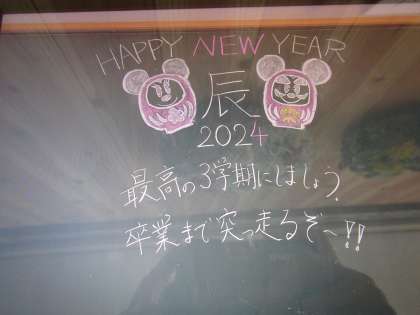 HAPPY NEW YEAR
辰
2024
最高の3学期にしましょう。
卒業まで突っ走るぞ〜!!